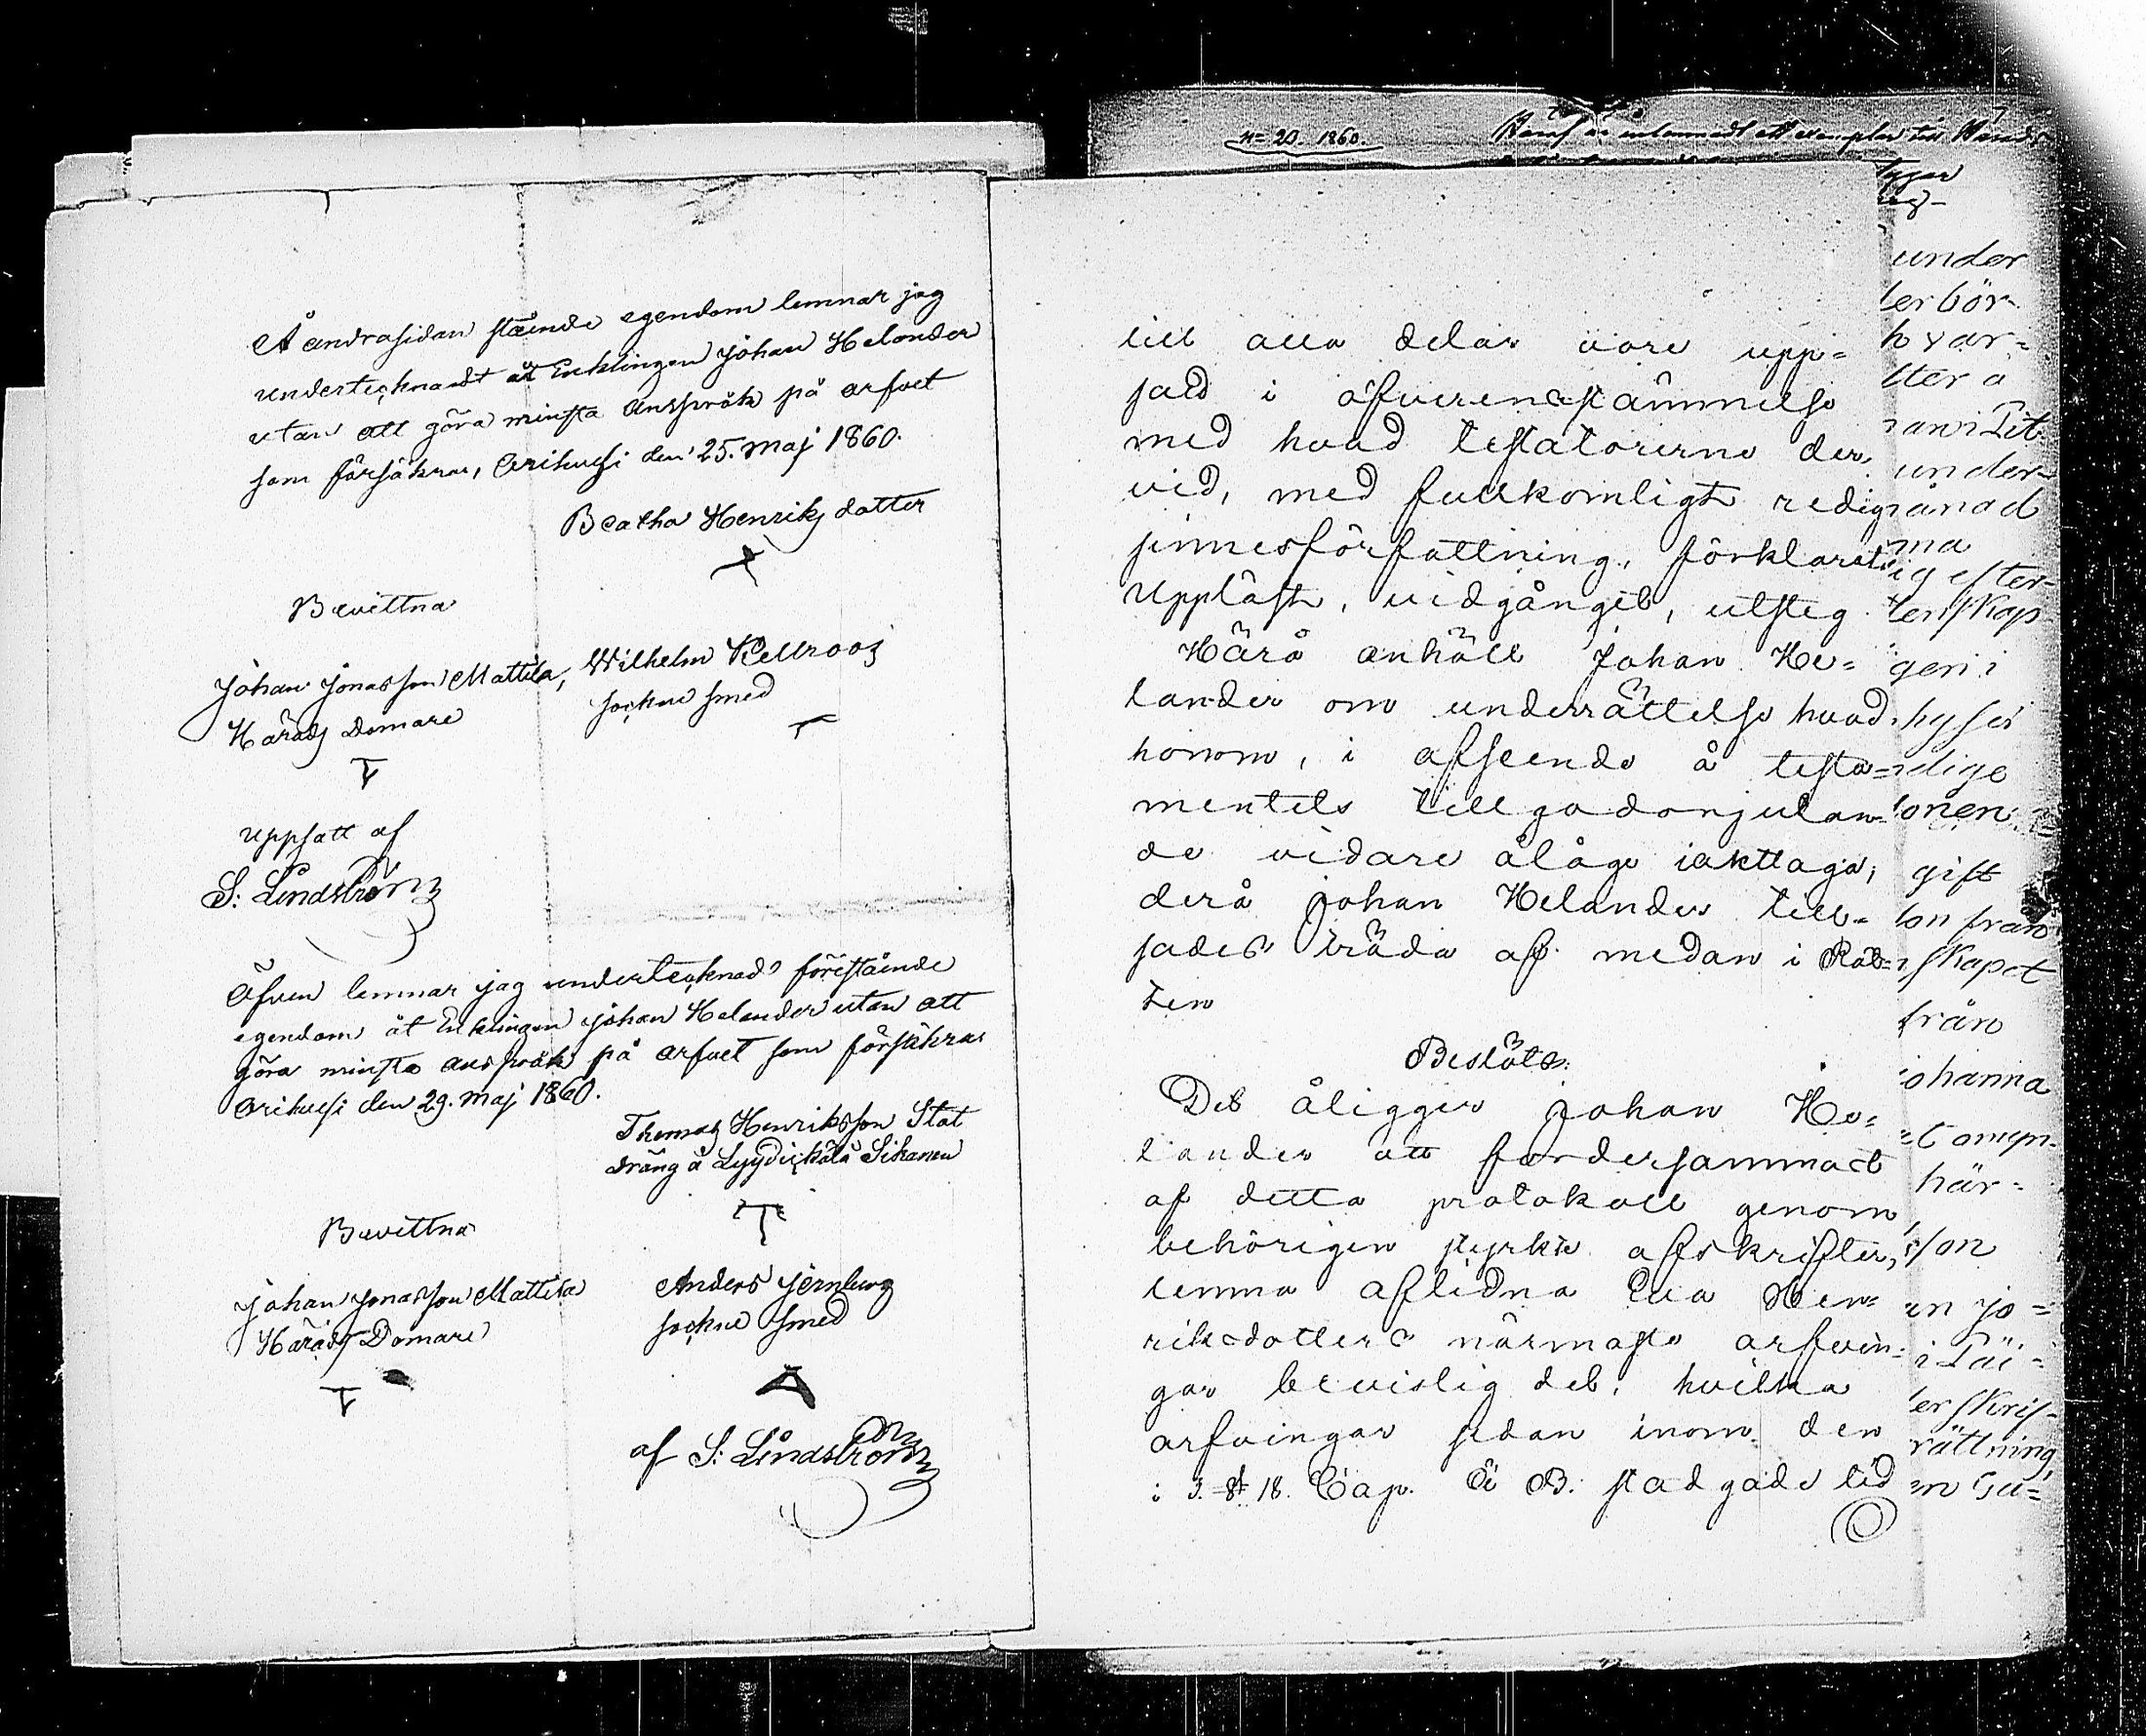 Å andrasidan stående egendom lemnar jag
undertecknadt åt Enklingen Johan Helander
utan att göra minsta anspråk på arfvet
som försäkras, Orihvesi den 25. Maj 1860.
Beatha Henriks dotter
Bevittna
Johan Jonasson Mattila,
Härads Domare
Wilhelm Kellroos
sockne smed
Uppsatt af
S: Lindström
Äfven lemnar jag undertecknad förestående
egendom åt Enklingen Johan Helander utan att
göra minsta anspråk på arfvet som försäkras
Orihvesi den 29. Maj 1860.
Thomas Henriksson Stat
dräng å Lyydickälä Sihanen
Bevittna
Johan Jonasson Mattila
Härads Domare
Anders Jernberg
sockne smed
af S: Lindström
N= 20. 1860.
till alla delar vore upp=
satt i öfverensstämmelse
med hvad testatorerne der
vid, med fullkomligt redig
sinnesförfattning, förklarat.
Uppläst, vidgånget, utsteg.
Härå anhöll Johan He=
lander om underrättelse hvad
honom, i afseende å testa=
mentets tillgodonjutan=
de vidare ålåge iakttaga;
derå Johan Helander till=
sades träda af medan i Rät=
ten
Beslöts:
Det åligger Johan He=
lander att fordersammast
af detta protokoll genom
behörigen styrkte afskrifter,
lemna aflidna Eva Hen=
riksdotters närmaste arfvin=
gar bevislig del, hvilka
arfvingar sedan inom den
i 3. § 18. Cap. Ä B. stadgade tid
under
ter bör-
hvar=
under=
ånad
ma
ig efter-
terskap
gen i
hyser
dige
onen
gift
son från
skapet
från
Johanna
här=
son
en Jo=
erskrif-
rättning,